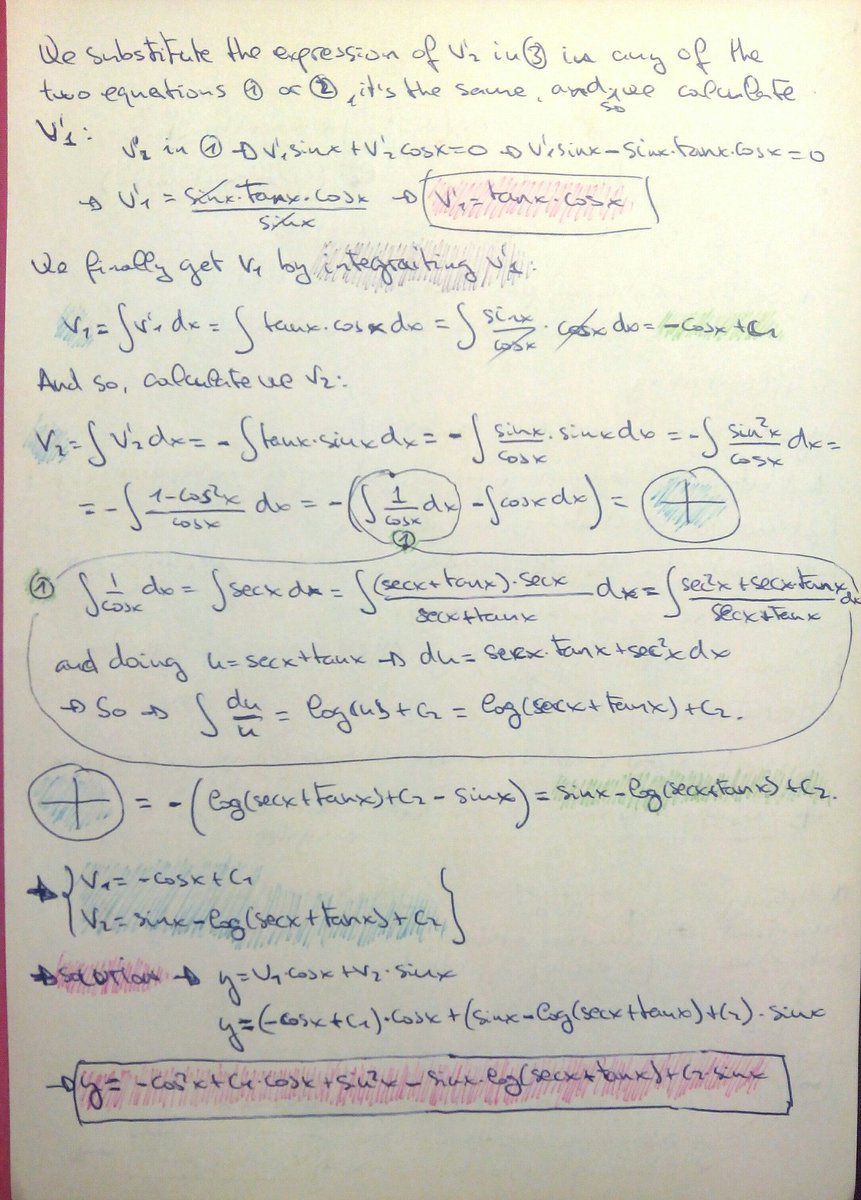 We substitute the expression of V'2 in ③ in any of the
two equations ① or ②, it's the same, and so we calculate
V'1:
V'2 in ① → V'1 sinx + V'2 cosx = 0 → V'1 sinx - sinx·tanx·cosx = 0
→ V'1 = sinx·tanx·cosx / sinx → V'1 = tanx·cosx
We finally get V1 by integrating V'1:
V1 = ∫V'1 dx = ∫ tanx·cosx dx = ∫ sinx/cosx · cosx dx = -cosx + C1
And so, calculate we V2:
V2 = ∫ V'2 dx = -∫tanx·sinx dx = -∫ sinx/cosx · sinx dx = -∫ sin²x/cosx dx =
= -∫ 1-cos²x/cosx dx = -(∫ 1/cosx dx - ∫cosx dx) =
①
① ∫ 1/cosx dx = ∫secx dx = ∫ (secx+tanx)·secx / secx+tanx dx = ∫ sec²x + secx·tanx / secx+tanx dx
and doing u = secx+tanx → du = secx·tanx + sec²x dx
→ So → ∫ du/u = log(u) + C2 = log(secx+tanx) + C2.
= -(log(secx+tanx)+C2 - sinx) = sinx - log(secx+tanx) + C2.
→ { V1 = -cosx + C1
V2 = sinx - log(secx+tanx) + C2 }
→ solution → y = V1·cosx + V2·sinx
y = (-cosx+C1)·cosx + (sinx - log(secx+tanx)+C2)·sinx
→ y = -cos²x + C1·cosx + sin²x - sinx·log(secx+tanx) + C2·sinx